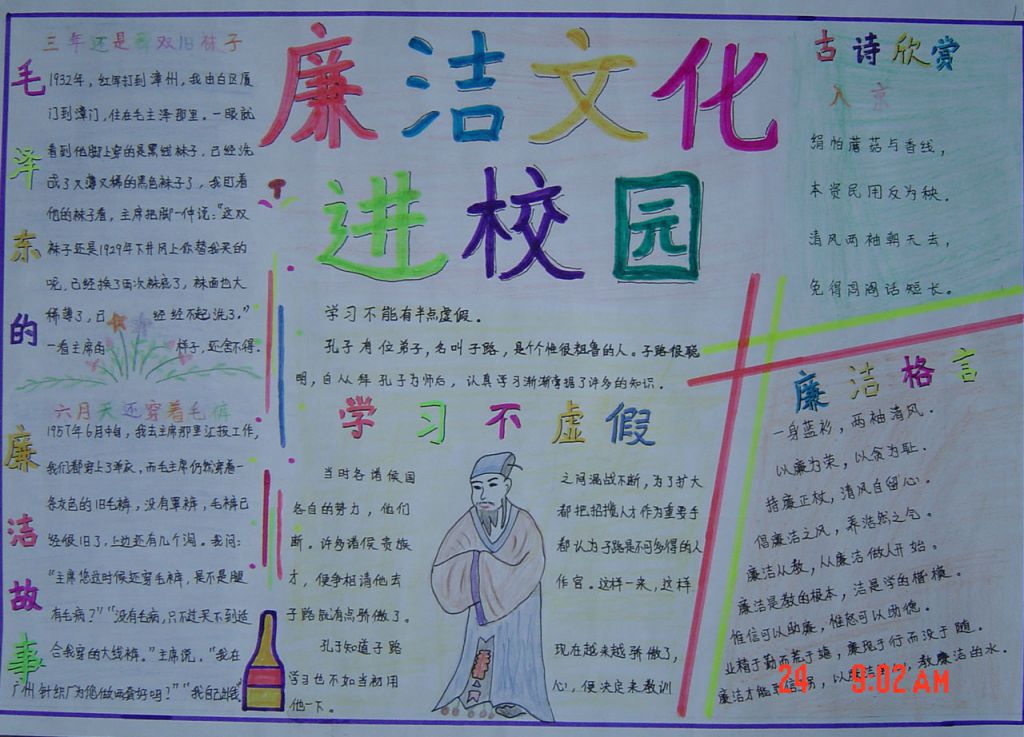 廉洁文化
进校园
毛泽东的
廉洁故事
三年还是那双旧袜子
1932年，红军打到漳州，我由白区厦
门到漳门，住在毛主泽那里。一眼就
看到他脚上穿的是黑线袜子，已经洗
成了又薄又稀的黑色袜子了，我盯着
他的袜子看，主席把脚一伸说：“这双
袜子还是1929年下井冈上你替我买的
呢，已经换了两次袜底了，袜面也大
稀薄了，已经经不起洗了。”
一看主席的样子，还舍不得.
六月天还穿着毛裤
1957年6月中旬，我去主席那里汇报工作，
我们都穿上了单衣，而毛主席仍然穿着一
条灰色的旧毛裤，没有罩裤，毛裤已
经很旧了，上边还有几个洞。我问：
“主席您这时候还穿毛裤，是不是腿
有毛病？”“没有毛病，只不过买不到适
合我穿的大线裤。”主席说，“我在
广州针织厂为您做两套好吗？”“我自己
学习不能有半点虚假。
孔子有位弟子，名叫子路，是个个性很粗鲁的人。子路很聪
明，自从拜孔子为师后，认真学习渐渐掌握了许多的知识。
学习不虚假
当时各诸侯国之间混战不断，为了扩大
各自的努力，他们都把招揽人才作为重要手
断。许多诸侯贵族都认为子路是不可多得的人
才，便争相请他去作官。这样一来，这样
子路就有点骄傲了。
孔子知道子路现在越来越骄傲了，
学习也不如当初用心，便决定来教训
他一下。
古诗欣赏
入京
绢怕蘑菇与香线，
本资民用反为秧.
清风两袖朝天去，
免得闾阎话短长.
廉洁格言
一身蓝衫，两袖清风.
以廉为荣，以贪为耻.
持廉正杖，清风自留心.
倡廉洁之风，养浩然之气.
廉洁从教，从廉洁做人开始。
廉洁是教的根本，洁是学的楷模。
惟信可以助廉，惟恕可以助德.
业精于勤而荒于嬉，廉现于行而没于随.
廉洁才能 教廉洁的水.
24 9:02AM